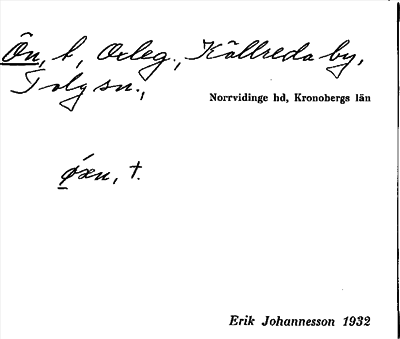 Ön, t, Ocleg., Källreda by,
Tolg sn.,
Norrvidinge hd, Kronobergs län
ǿn, t.
Erik Johannesson 1932